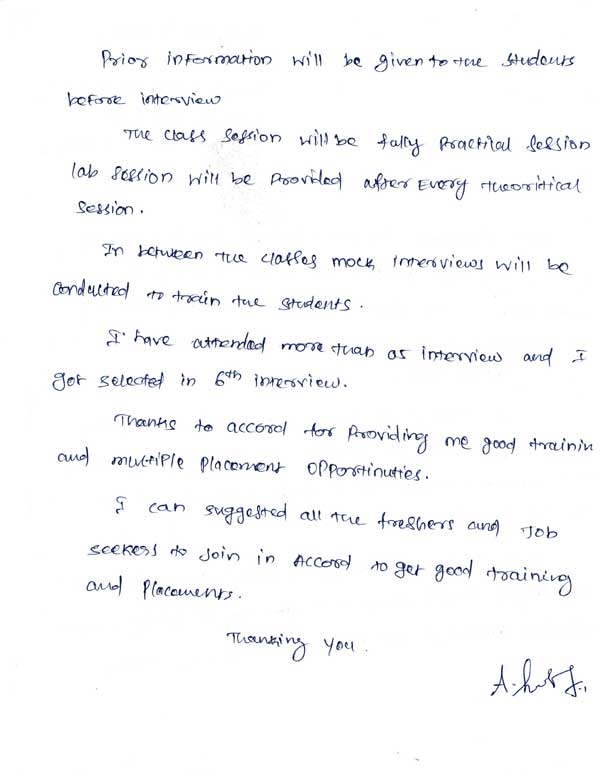 Prior information will be given to the students
before interview
The class session will be fully practical session
lab session will be provided after every theoritical
session.
In between the classes mock interviews will be
conducted to train the students.
I have attended more than 05 interview and I
got selected in 6th interview.
Thanks to accord for providing me good trainin
and multiple placement opportinuties.
I can suggested all the freshers and Job
seekess to Join in Accord to get good training
and placements.
Thanking you.